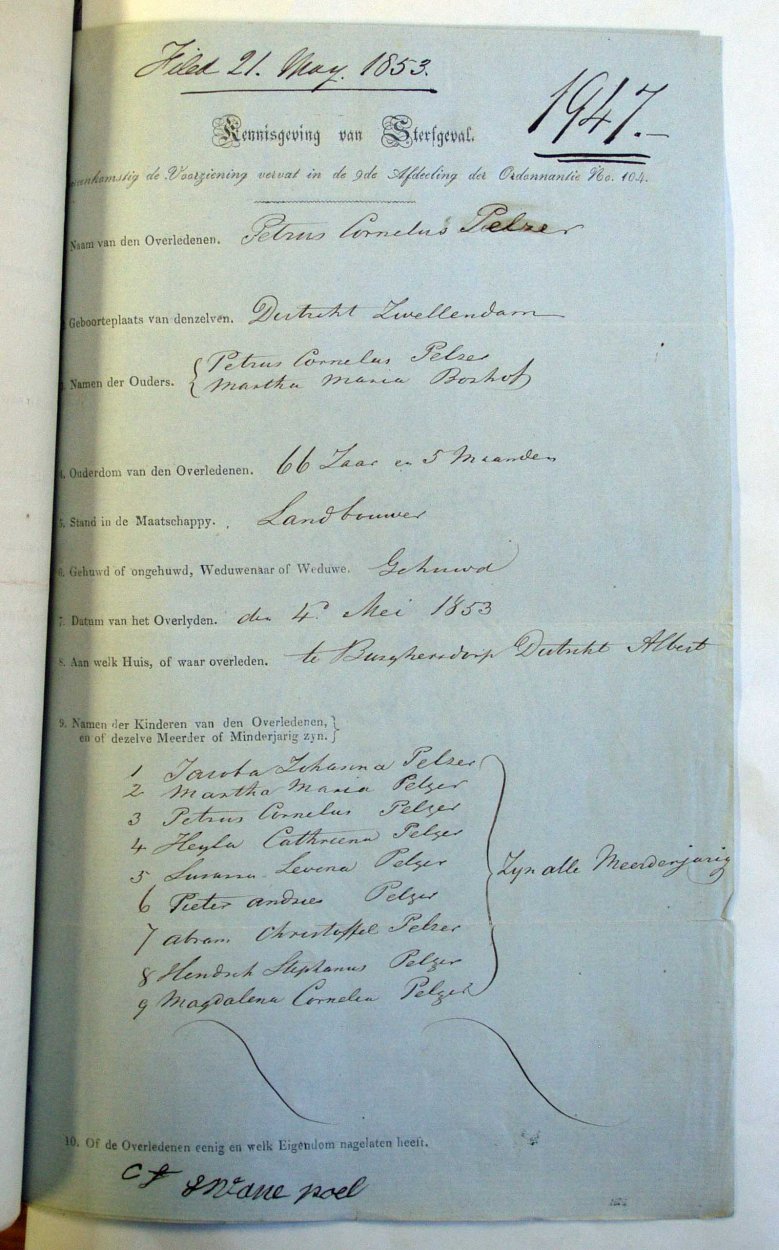 Filed 21. May. 1853.
1947.-
Kennisgeving van Sterfgeval.
eenkomstig de Voorziening vervat in de 9de Afdeeling der Ordonnantie No. 104.
Naam van den Overledenen. Petrus Cornelus Pelzer
Geboorteplaats van denzelven. Distrikt Zwellendam
3. Namen der Ouders. { Petrus Cornelus Pelzer
Martha Maria Boshof
4. Ouderdom van den Overledenen. 66 Jaar en 5 Maanden
5. Stand in de Maatschappy. Landbouwer
6. Gehuwd of ongehuwd, Weduwenaar of Weduwe. Gehuwd
7. Datum van het Overlyden. den 4 Mei 1853
8. Aan welk Huis, of waar overleden. te Burghersdorp Distrikt Albert
9. Namen der Kinderen van den Overledenen, }
en of dezelve Meerder of Minderjarig zyn.
1 Jacoba Johanna Pelzer
2 Martha Maria Pelzer
3 Petrus Cornelus Pelzer
4 Heyla Cathriena Pelzer
5 Susanna Levena Pelzer
6 Pieter andries Pelzer
7 abram Christoffel Pelzer
8 Hendrik Stephanus Pelzer
9 Magdalena Cornelia Pelzer
Zyn alle Meerderjarig
10. Of de Overledenen eenig en welk Eigendom nagelaten heeft.
poel